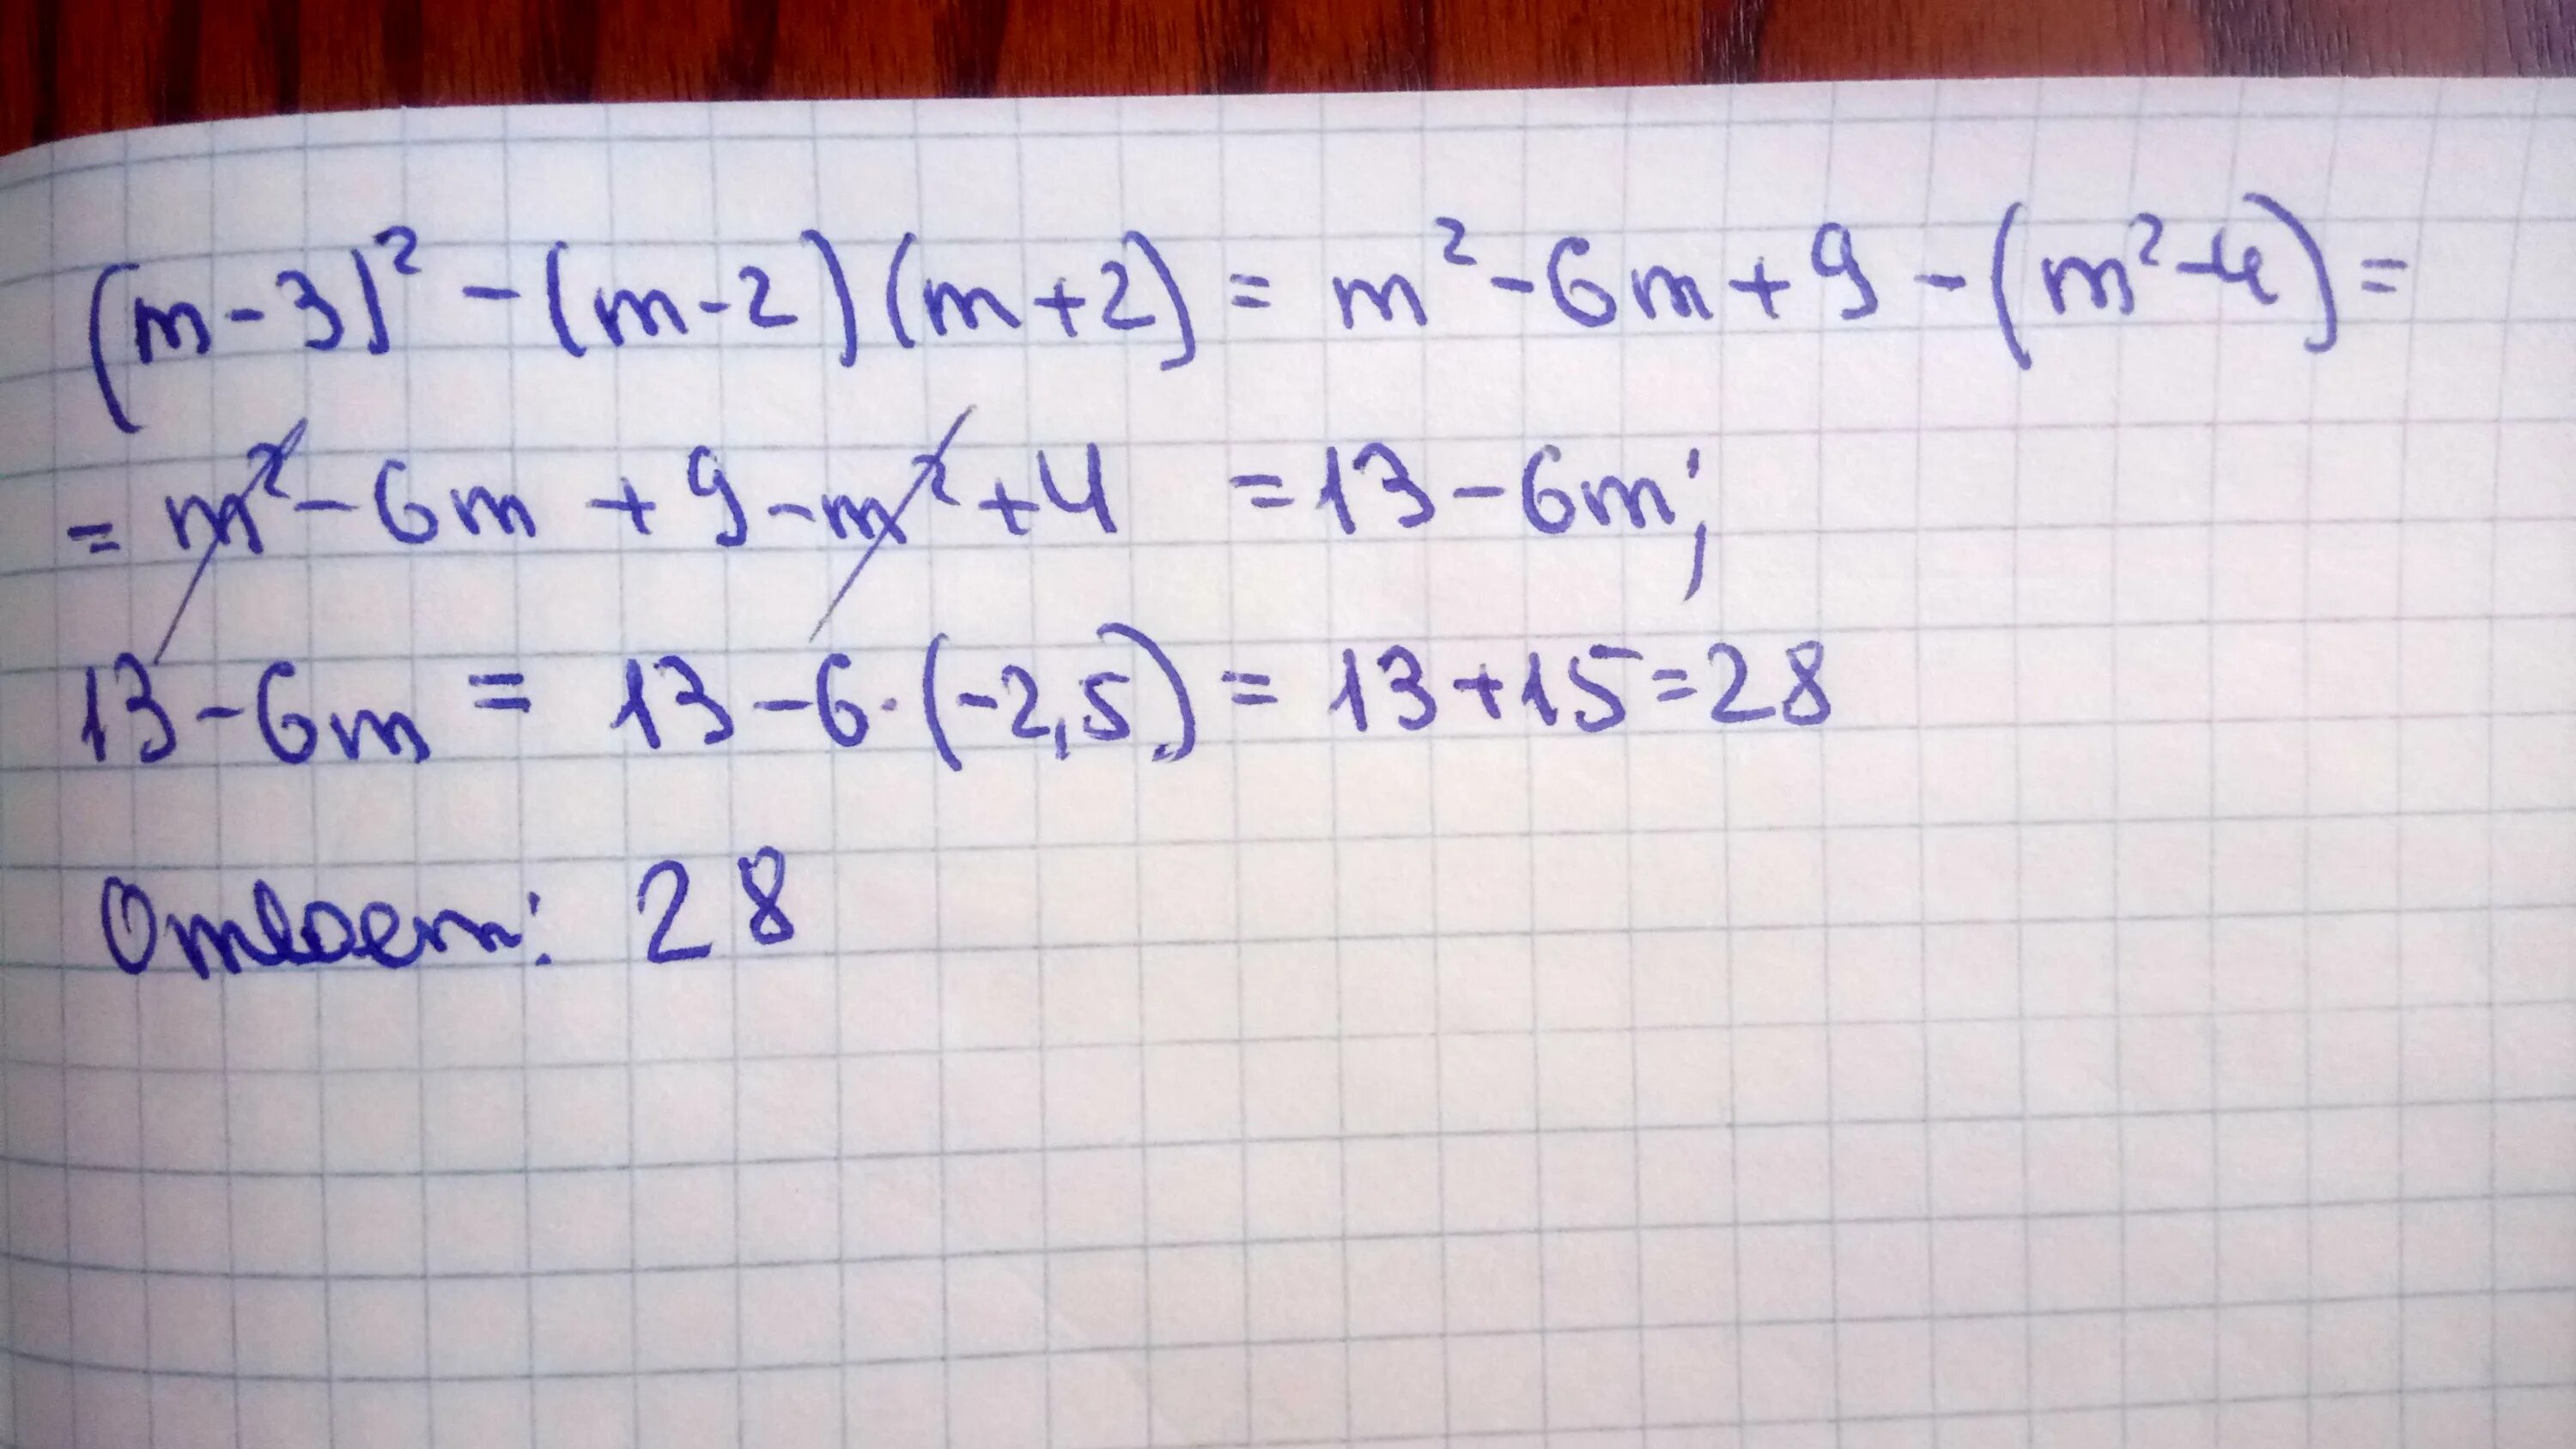 (m-3)² - (m-2)(m+2) = m² - 6m + 9 - (m² - 4) =
= m² - 6m + 9 - m² + 4 = 13 - 6m;
13 - 6m = 13 - 6·(-2,5) = 13 + 15 = 28
Ответ: 28